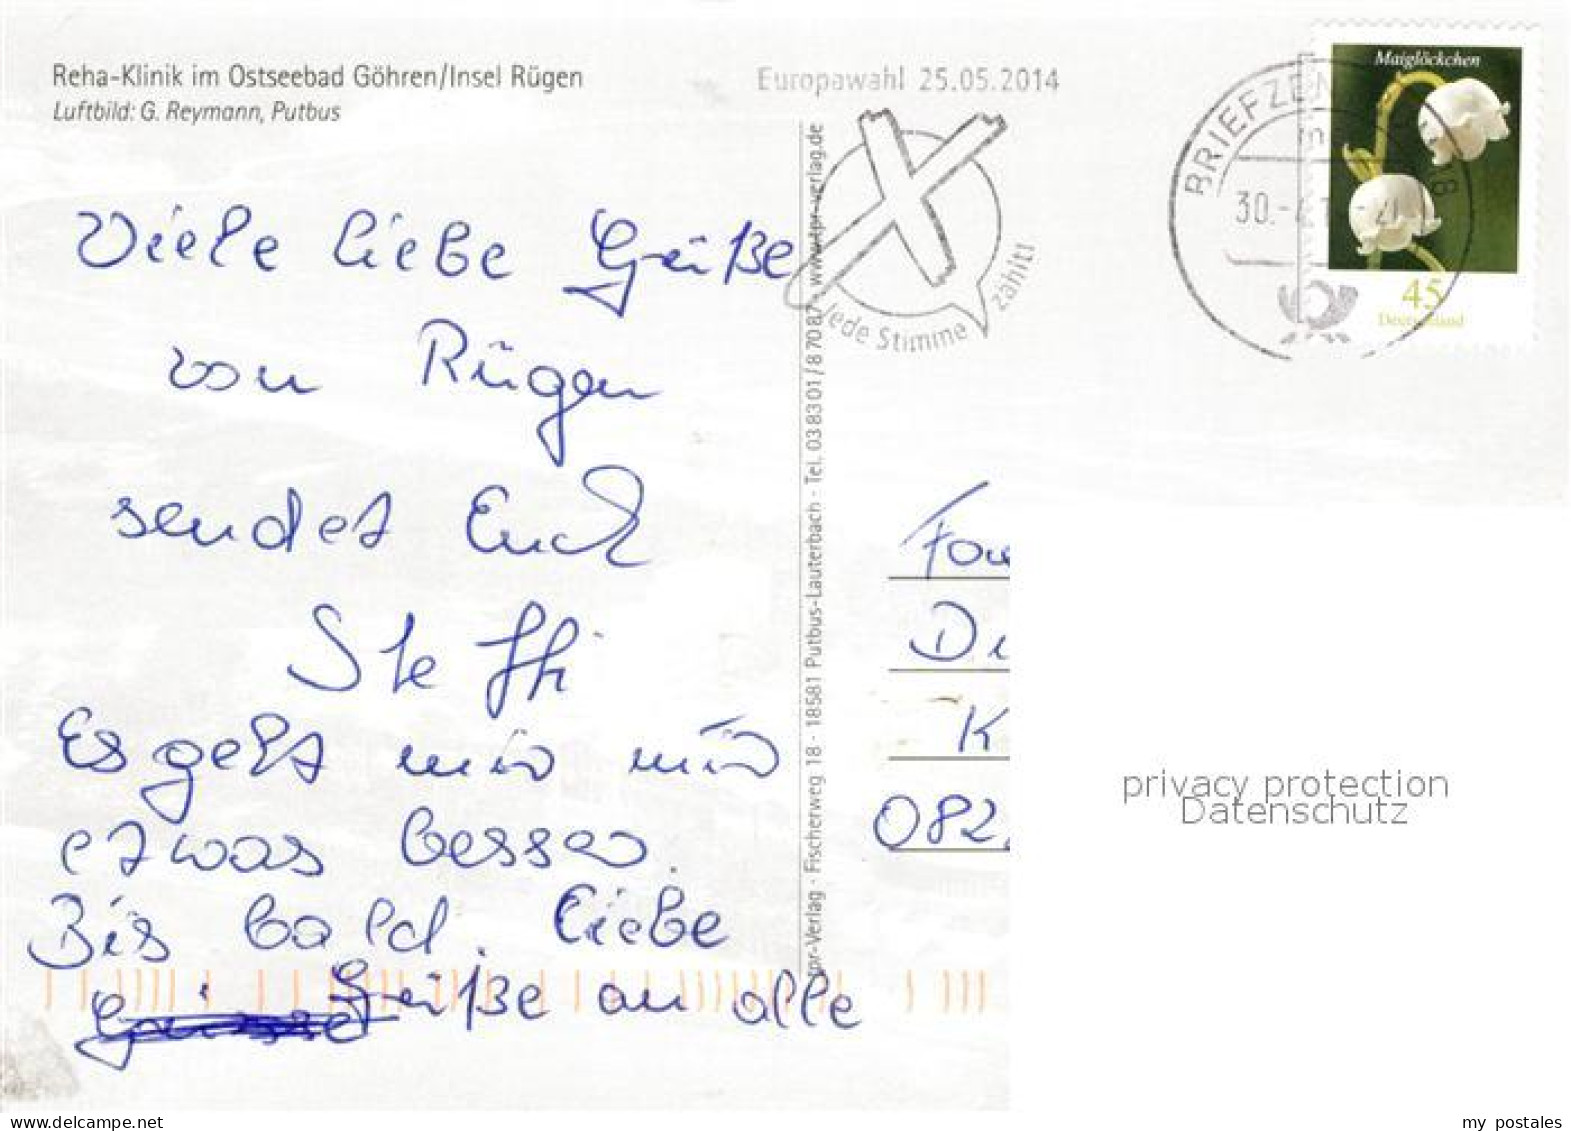 Reha-Klinik im Ostseebad Göhren/Insel Rügen
Luftbild: G. Reymann, Putbus
Europawahl 25.05.2014
Jede Stimme zählt!
BRIEFZEN
18
30.-4.1
Maiglöckchen
45
Deutschland
Viele liebe Grüße
von Rügen
sendet Euch
Steffi
Es geht mir mir
etwas besser.
Bis bald. Liebe
Grüße an alle
pr-Verlag · Fischerweg 18 · 18581 Putbus-Lauterbach · Tel. 038301/87087 · www.rpr-verlag.de
Fam
Di
K
082
privacy protection
Datenschutz
my postales